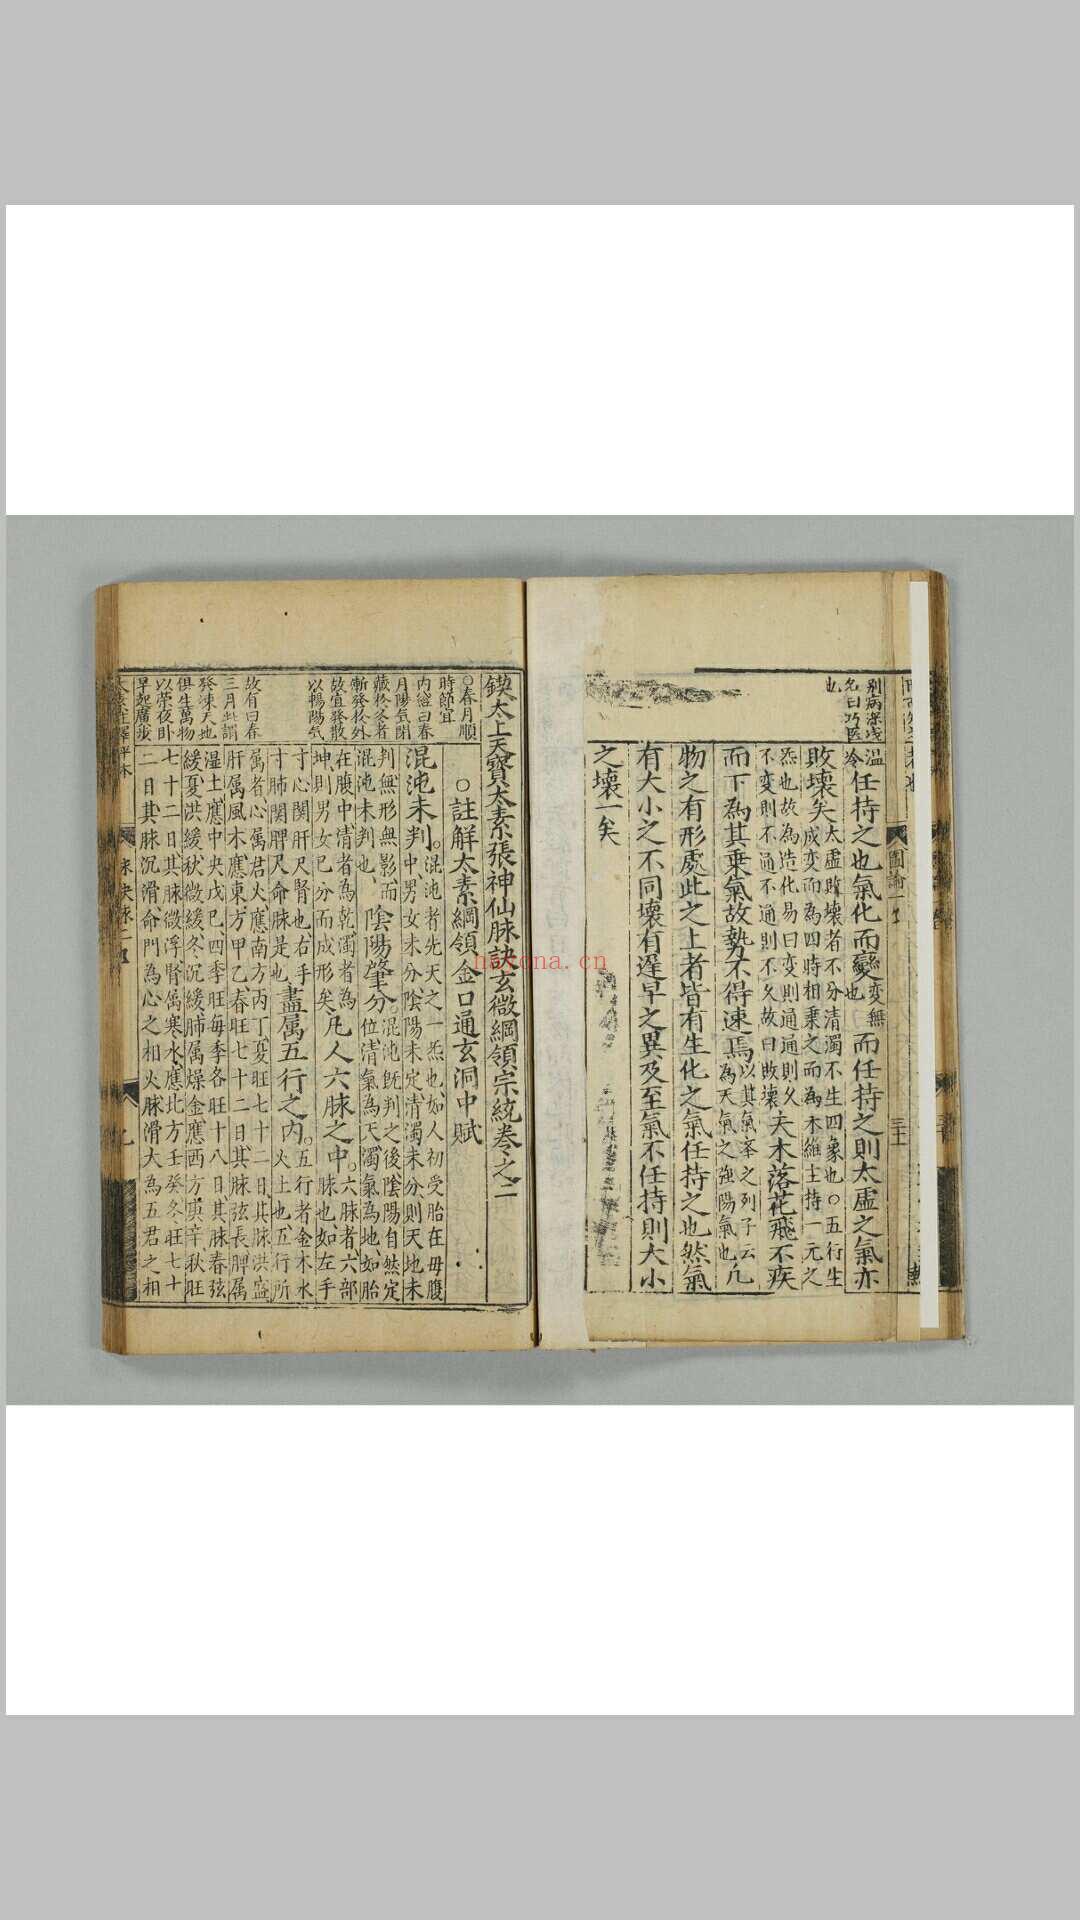 别病深浅
名曰巧医
也
温
冷任持之也氣化而變變無也而任持之則太虛之氣亦
敗壞矣太虛敗壞者不分清濁不生四象也○五行生
成变而為四時相乗之而為木維主持一元之
炁也故為造化易曰变則通通則久
不变則不通不通則不久故曰敗壞夫木落花飛不疾
而下為其乗氣故勢不得速焉以其氣举之列子云
為天氣之強陽氣也凢
物之有形處此之上者皆有生化之氣任持之也然氣
有大小之不同壞有遲早之異及至氣不任持則大小
之壞一矣
圖論一
三十
鍥太上天寶太素張神仙脉訣玄微綱領宗統卷之二
○註解太素綱領金口通玄洞中賦
○春月順
時節宜
内經曰春
月陽氣閉
藏於冬者
漸發於外
故宜發散
以暢陽氣
故有曰春
三月此謂
發陳天地
俱生萬物
以荣夜卧
早起廣步
混沌未判。混沌者先天之一炁也、如人初受胎在母腹
中男女未分陰陽未定清濁未分則天地未
判無形無影而陰陽肇分。混沌既判之後陰陽自然定
位清氣為天濁氣為地、如胎
混沌未判也、
在腹中清者為乾濁者為
坤則男女已分而成形矣凢人六脉之中。六脉者六部
脉也如左手
寸心関肝尺腎也右手
寸肺関脾尺命脉是也盡属五行之内。五行者金木水
火土也五行所
属者心属君火應南方丙丁夏旺七十二日、其脉洪盛
肝属風木應東方甲乙春旺七十二日其脉弦長脾属
湿土應中央戊巳、四季旺毎季各旺十八日、其脉春弦
緩夏洪緩秋微緩冬沉緩肺属燥金應西方庚辛秋旺
七十二日其脉微浮腎属寒水應北方壬癸冬旺七十
二日其脉沉滑命門為心之相火脉滑大為五君之相
太素註釋評林
脉訣
九